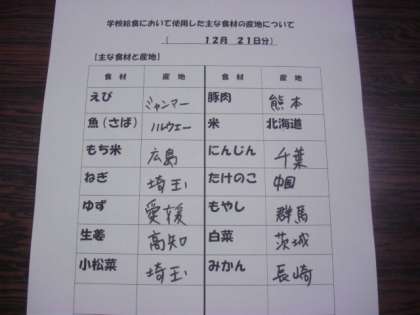 学校給食において使用した主な食材の産地について
( 12月 21日分)
[主な食材と産地]
食材 産地 食材 産地
えび ミャンマー 豚肉 熊本
魚(さば) ノルウェー 米 北海道
もち米 広島 にんじん 千葉
ねぎ 埼玉 たけのこ 中国
ゆず 愛媛 もやし 群馬
生姜 高知 白菜 茨城
小松菜 埼玉 みかん 長崎